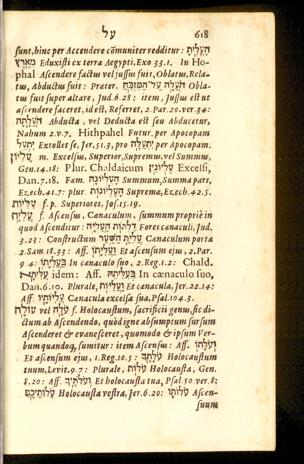 על 618
sunt, hinc per Accendere cōmuniter redditur: הֶעֱלִיתָ
מֵאֶרֶץ Eduxisti ex terra Aegypti, Exo. 33. 1. In Ho-
phal Ascendere factus vel jussus fuit, Oblatus, Rela-
tus, Abductus fuit: Præter. הֹעֲלָה עַל־הַמִּזְבֵּחַ Obla-
tus fuit super Altare, Jud. 6. 28: item, Jussus est ut
ascendere faceret, id est, Referret, 2. Par. 20. ver. 34:
הֹעֲלָתָה Abducta, vel Deducta est seu Abducetur,
Nahum 2. v. 7. Hithpahel Futur. per Apopocam
יִתְעַל Extollet se, Jer. 51. 3, pro יִתְעַלֶּה per Apocopam.
עֶלְיוֹן m. Excelsus, Superior, Supremus, vel Summus,
Gen. 14. 18: Plur. Chaldaicum עֶלְיוֹנִין Excelsi,
Dan. 7. 18. Fœm. הָעֶלְיוֹנָה Summum, Summa pars,
Ez. ech. 41. 7: plur. הָעֶלְיוֹנֹת Suprema, Ezech. 42. 5.
עִלִּיּוֹת f. p. Superiores, Jos. 15. 19.
עֲלִיָּה f. Ascensus, Cœnaculum, summum propriè in
quod Ascenditur: דַּלְתוֹת הָעֲלִיָּה Fores cœnaculi, Jud.
3. 23: Constructum עֲלִיַּת הַשַּׁעַר Cœnaculum porta
2. Sam. 18. 33: Aff. וַעֲלִיָּתוֹ Et ascensum ejus, 2. Par.
9. 4: בַּעֲלִיָּתוֹ In cœnaculo suo, 2. Reg. 1. 2: Chald.
עִלִּיתָא idem: Aff. בְּעִלִּיתֵהּ In cœnaculo suo,
Dan. 6. 10. Plurale, וַעֲלִיּוֹת Et cœnacula, Jer. 22. 14:
Aff. עֲלִיּוֹתָיו Cœnacula excelsa sua, Psal. 104. 3.
עֹלָה vel עוֹלָה f. Holocaustum, sacrificii genus, sic di-
ctum ab Ascendendo, quòd igne absumptum sursum
Ascenderet & evanesceret, quomodo & ipsum Ver-
bum quandoq́, sumitur: item Ascensus: Aff. וְעֹלָתוֹ
Et ascensum ejus, 1. Reg. 10. 5: עֹלָתְךָ Holocaustum
tuum, Levit. 9. 7: Plurale, עֹלֹת Holocausta, Gen.
8. 20: Aff. וְעוֹלֹתֶיךָ Et holocausta tua, Psal. 50. ver. 8:
עֹלוֹתֵיכֶם Holocausta vestra, Jer. 6. 20: עֹלוֹתָו Ascen-
suum